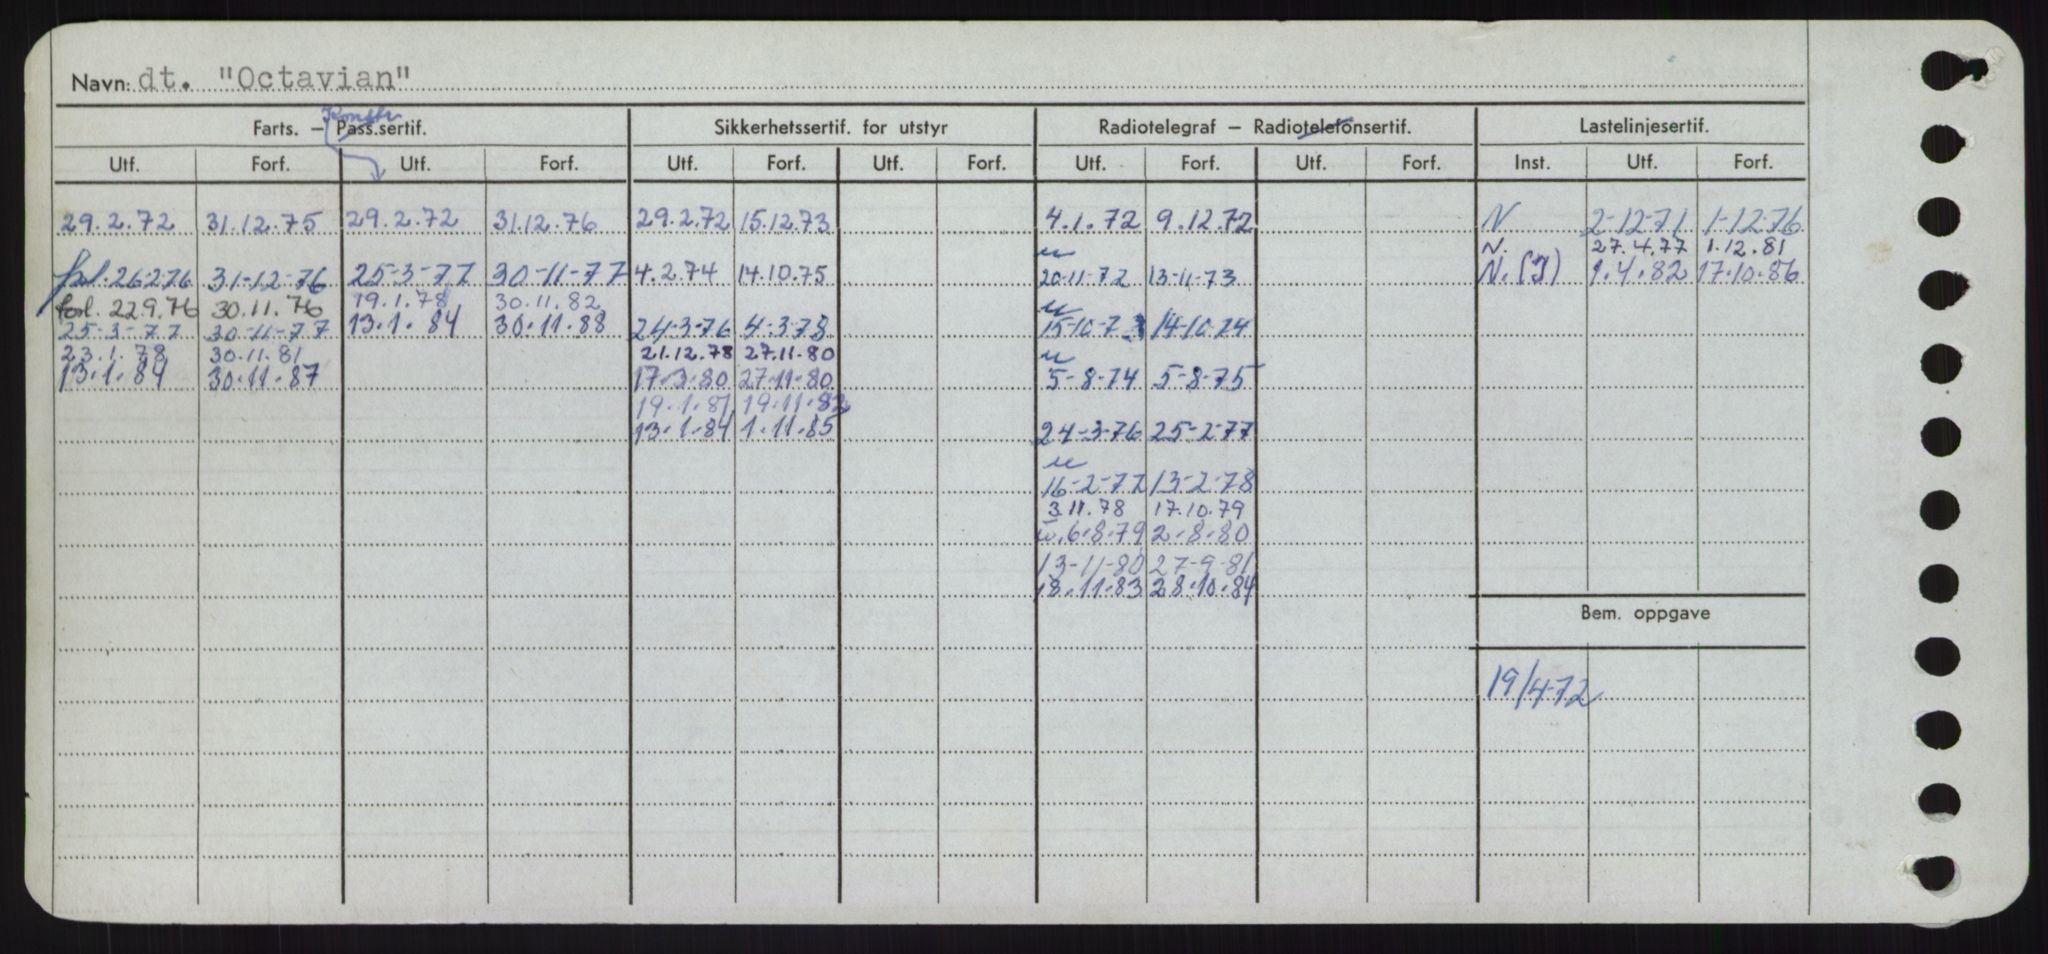 Navn: dt. "Octavian"
Konstr.
Farts. – Pass.sertif. Sikkerhetssertif. for utstyr Radiotelegraf – Radiotelefonsertif. Lastelinjesertif.
Utf. Forf. Utf. Forf. Utf. Forf. Utf. Forf. Utf. Forf. Utf. Forf. Inst. Utf. Forf.
29.2.72 31.12.75 29.2.72 31.12.76 29.2.72 15.12.73 4.1.72 9.12.72 N 2-12-71 1-12-76
N. 27.4.77 1.12.81
forl. 26-2-76 31-12-76 25-3-77 30-11-77 4.2.74 14.10.75 20-11-72 13-11-73 N.(I) 1.4.82 17.10.86
forl. 22.9.76 30.11.76 19.1.78 30.11.82
25-3-77 30-11-77 13.1.84 30.11.88 24-3-76 4-3-78 15-10-73 14-10-74
23.1.78 30.11.81 21.12.78 27.11.80
13.1.84 30.11.87 17.3.80 27.11.80 5-8-74 5-8-75
19.1.81 19.11.82
13.1.84 1.11.85 24-3-76 25-2-77
16-2-77 13-2-78
3.11.78 17.10.79
u. 6.8.79 2.8.80
13-11-80 27-9-81
18.11.83 28.10.84
Bem. oppgave
19/4-72